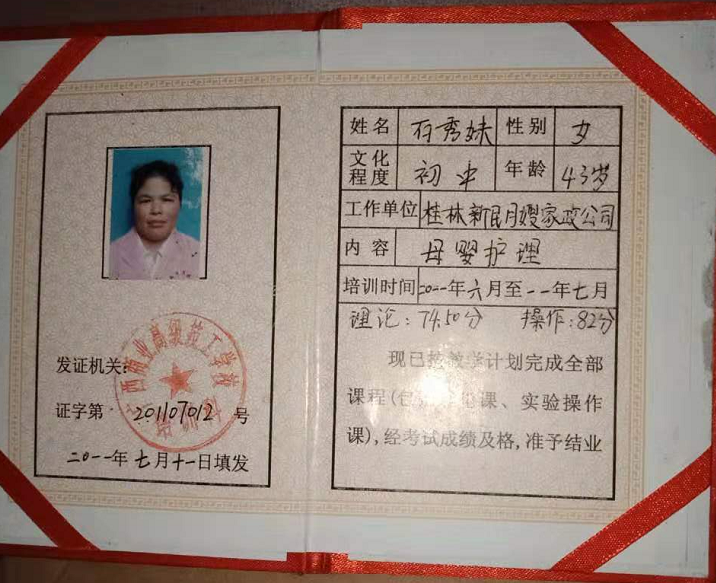 发证机关:
证字第 201107012 号
二〇一一年七月十一日填发
姓名 石秀妹 性别 女
文化程度 初中 年龄 43岁
工作单位 桂林新民月嫂家政公司
内容 母婴护理
培训时间 二〇一一年六月至一一年七月
理论:74.50分 操作:82分
现已按教学计划完成全部
课程(包 课、实验操作
课),经考试成绩及格,准予结业
西 业高级技工学校